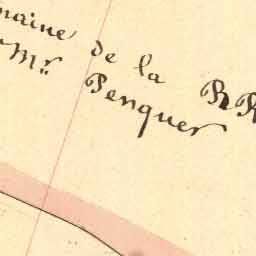 maine de la RR
Mr Penquer